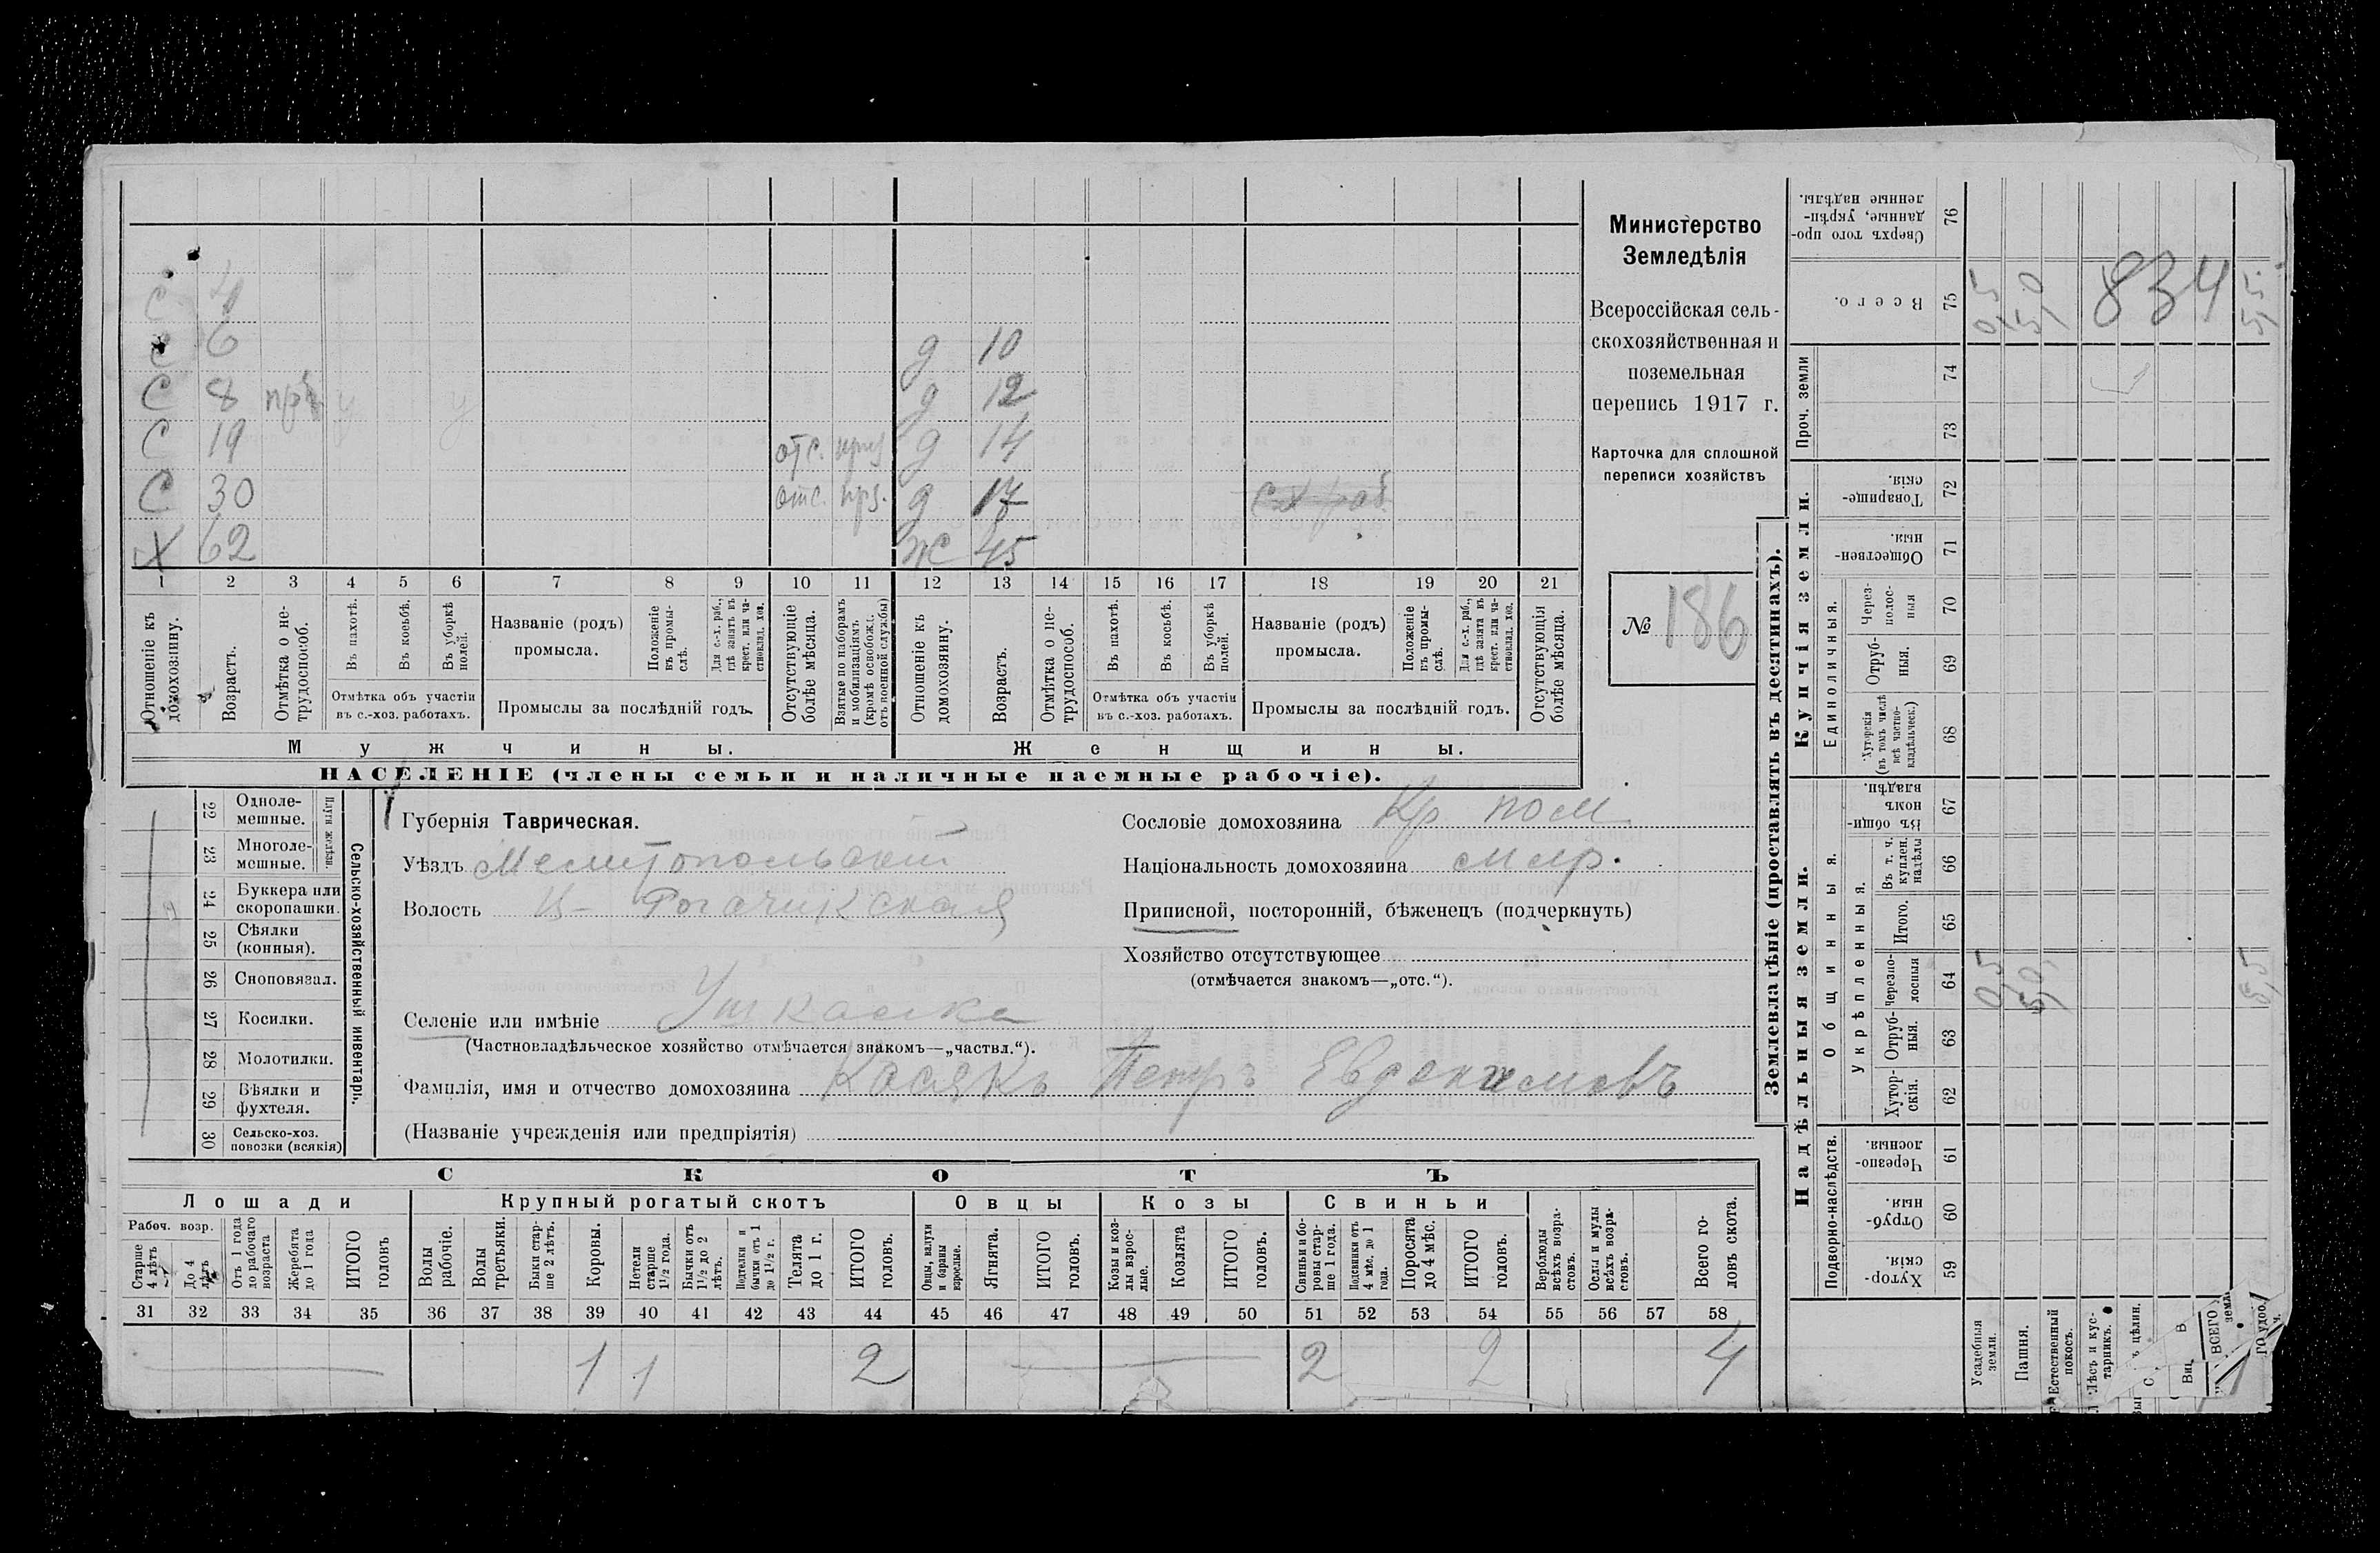 С 4
С 6 д 10
С 8 д 12
С 19 отс. д 14
С 30 отс. прз. д 17 с-х раб
Х 62 ж 45
1 2 3 4 5 6 7 8 9 10 11 12 13 14 15 16 17 18 19 20 21
Отношеніе къ домохозяину.
Возрастъ.
Отмѣтка о нетрудоспособ.
Въ пахотѣ.
Въ косьбѣ.
Въ уборкѣ полей.
Отмѣтка объ участіи
въ с.-хоз. работахъ.
Названіе (родъ)
промысла.
Положеніе въ промыслѣ.
Для с.-х. раб., гдѣ занятъ въ крест. или частновлад. хоз.
Промыслы за послѣдній годъ.
Отсутствующіе болѣе мѣсяца.
Взятые по наборамъ и мобилизаціямъ (кромѣ освобожд. отъ военной службы)
Отношеніе къ домохозяину.
Возрастъ.
Отмѣтка о нетрудоспособ.
Въ пахотѣ.
Въ косьбѣ.
Въ уборкѣ полей.
Отмѣтка объ участіи
въ с.-хоз. работахъ.
Названіе (родъ)
промысла.
Положеніе въ промыслѣ.
Для с.-х. раб., гдѣ занята въ крест. или частновлад. хоз.
Промыслы за послѣдній годъ.
Отсутствующія болѣе мѣсяца.
Мужчины. Женщины.
НАСЕЛЕНІЕ (члены семьи и наличные наемные рабочіе).
Министерство
Земледѣлія
Всероссійская сель-
скохозяйственная и
поземельная
перепись 1917 г.
Карточка для сплошной
переписи хозяйствъ
№ 186
22 Одноле-
мешные.
23 Многоле-
мешные.
Плуги желѣзн.
24 Буккера или
скоропашки.
25 Сѣялки
(конныя).
26 Сноповязал.
27 Косилки.
28 Молотилки.
29 Вѣялки и
фухтеля.
30 Сельско-хоз.
повозки (всякія)
Сельско-хозяйственный инвентарь.
Губернія Таврическая.
Уѣздъ Мелитопольскій
Волость Рогачикская
Селеніе или имѣніе Ушкалка
(Частновладѣльческое хозяйство отмѣчается знакомъ—„частвл.“).
Фамилія, имя и отчество домохозяина Косякъ Петръ Евдокимовъ
(Названіе учрежденія или предпріятія)
Сословіе домохозяина Кр
Національность домохозяина млр.
Приписной, посторонній, бѣженецъ (подчеркнуть)
Хозяйство отсутствующее
(отмѣчается знакомъ—„отс.“).
СКОТЪ
Лошади Крупный рогатый скотъ Овцы Козы Свиньи
Рабоч. возр.
Старше 4 лѣтъ
До 4 лѣтъ
Отъ 1 года до рабочаго возраста
Жеребята до 1 года
ИТОГО головъ
Волы рабочіе.
Волы третьяки.
Быки старше 2 лѣтъ.
Коровы.
Нетели старше 1½ года.
Бычки отъ 1½ до 2 лѣтъ.
Нетели и бычки отъ 1 до 1½ г.
Телята до 1 г.
ИТОГО головъ.
Овцы, валухи и бараны взрослые.
Ягнята.
ИТОГО головъ.
Козы и козлы взрослые.
Козлята
ИТОГО головъ.
Свиньи и боровы старше 1 года.
Подсвинки отъ 4 мѣс. до 1 года.
Поросята до 4 мѣс.
ИТОГО головъ.
Верблюды всѣхъ возрастовъ.
Ослы и мулы всѣхъ возрастовъ.
Всего головъ скота.
31 32 33 34 35 36 37 38 39 40 41 42 43 44 45 46 47 48 49 50 51 52 53 54 55 56 57 58
1 1 2 2 2 4
Землевладѣніе (проставлять въ десятинахъ).
Купчія земли.
Надѣльныя земли.
Сверхъ того проданные, укрѣпленные надѣлы. 76
Всего. 75 0,5 5,0 834 5,5
Проч. земли 74
73
Товарищескія. 72
Общественныя. 71
Единоличныя.
Черезполосныя 70
Отрубныя. 69
Хуторскія (въ томъ числѣ всѣ частновладѣльческ.) 68
Общинныя.
Въ общинномъ владѣн. 67
Укрѣпленныя.
Въ т. ч. куплен. надѣлы 66
Итого. 65
Черезполосныя 64 0,5 5,0 5,5
Отрубныя. 63
Хуторскія. 62
Подворно-наслѣдств.
Черезполосныя. 61
Отрубныя. 60
Хуторскія. 59
Усадебныя земли.
Пашня.
Естественный покосъ.
Лѣсъ и кустарникъ.
ВСЕГО